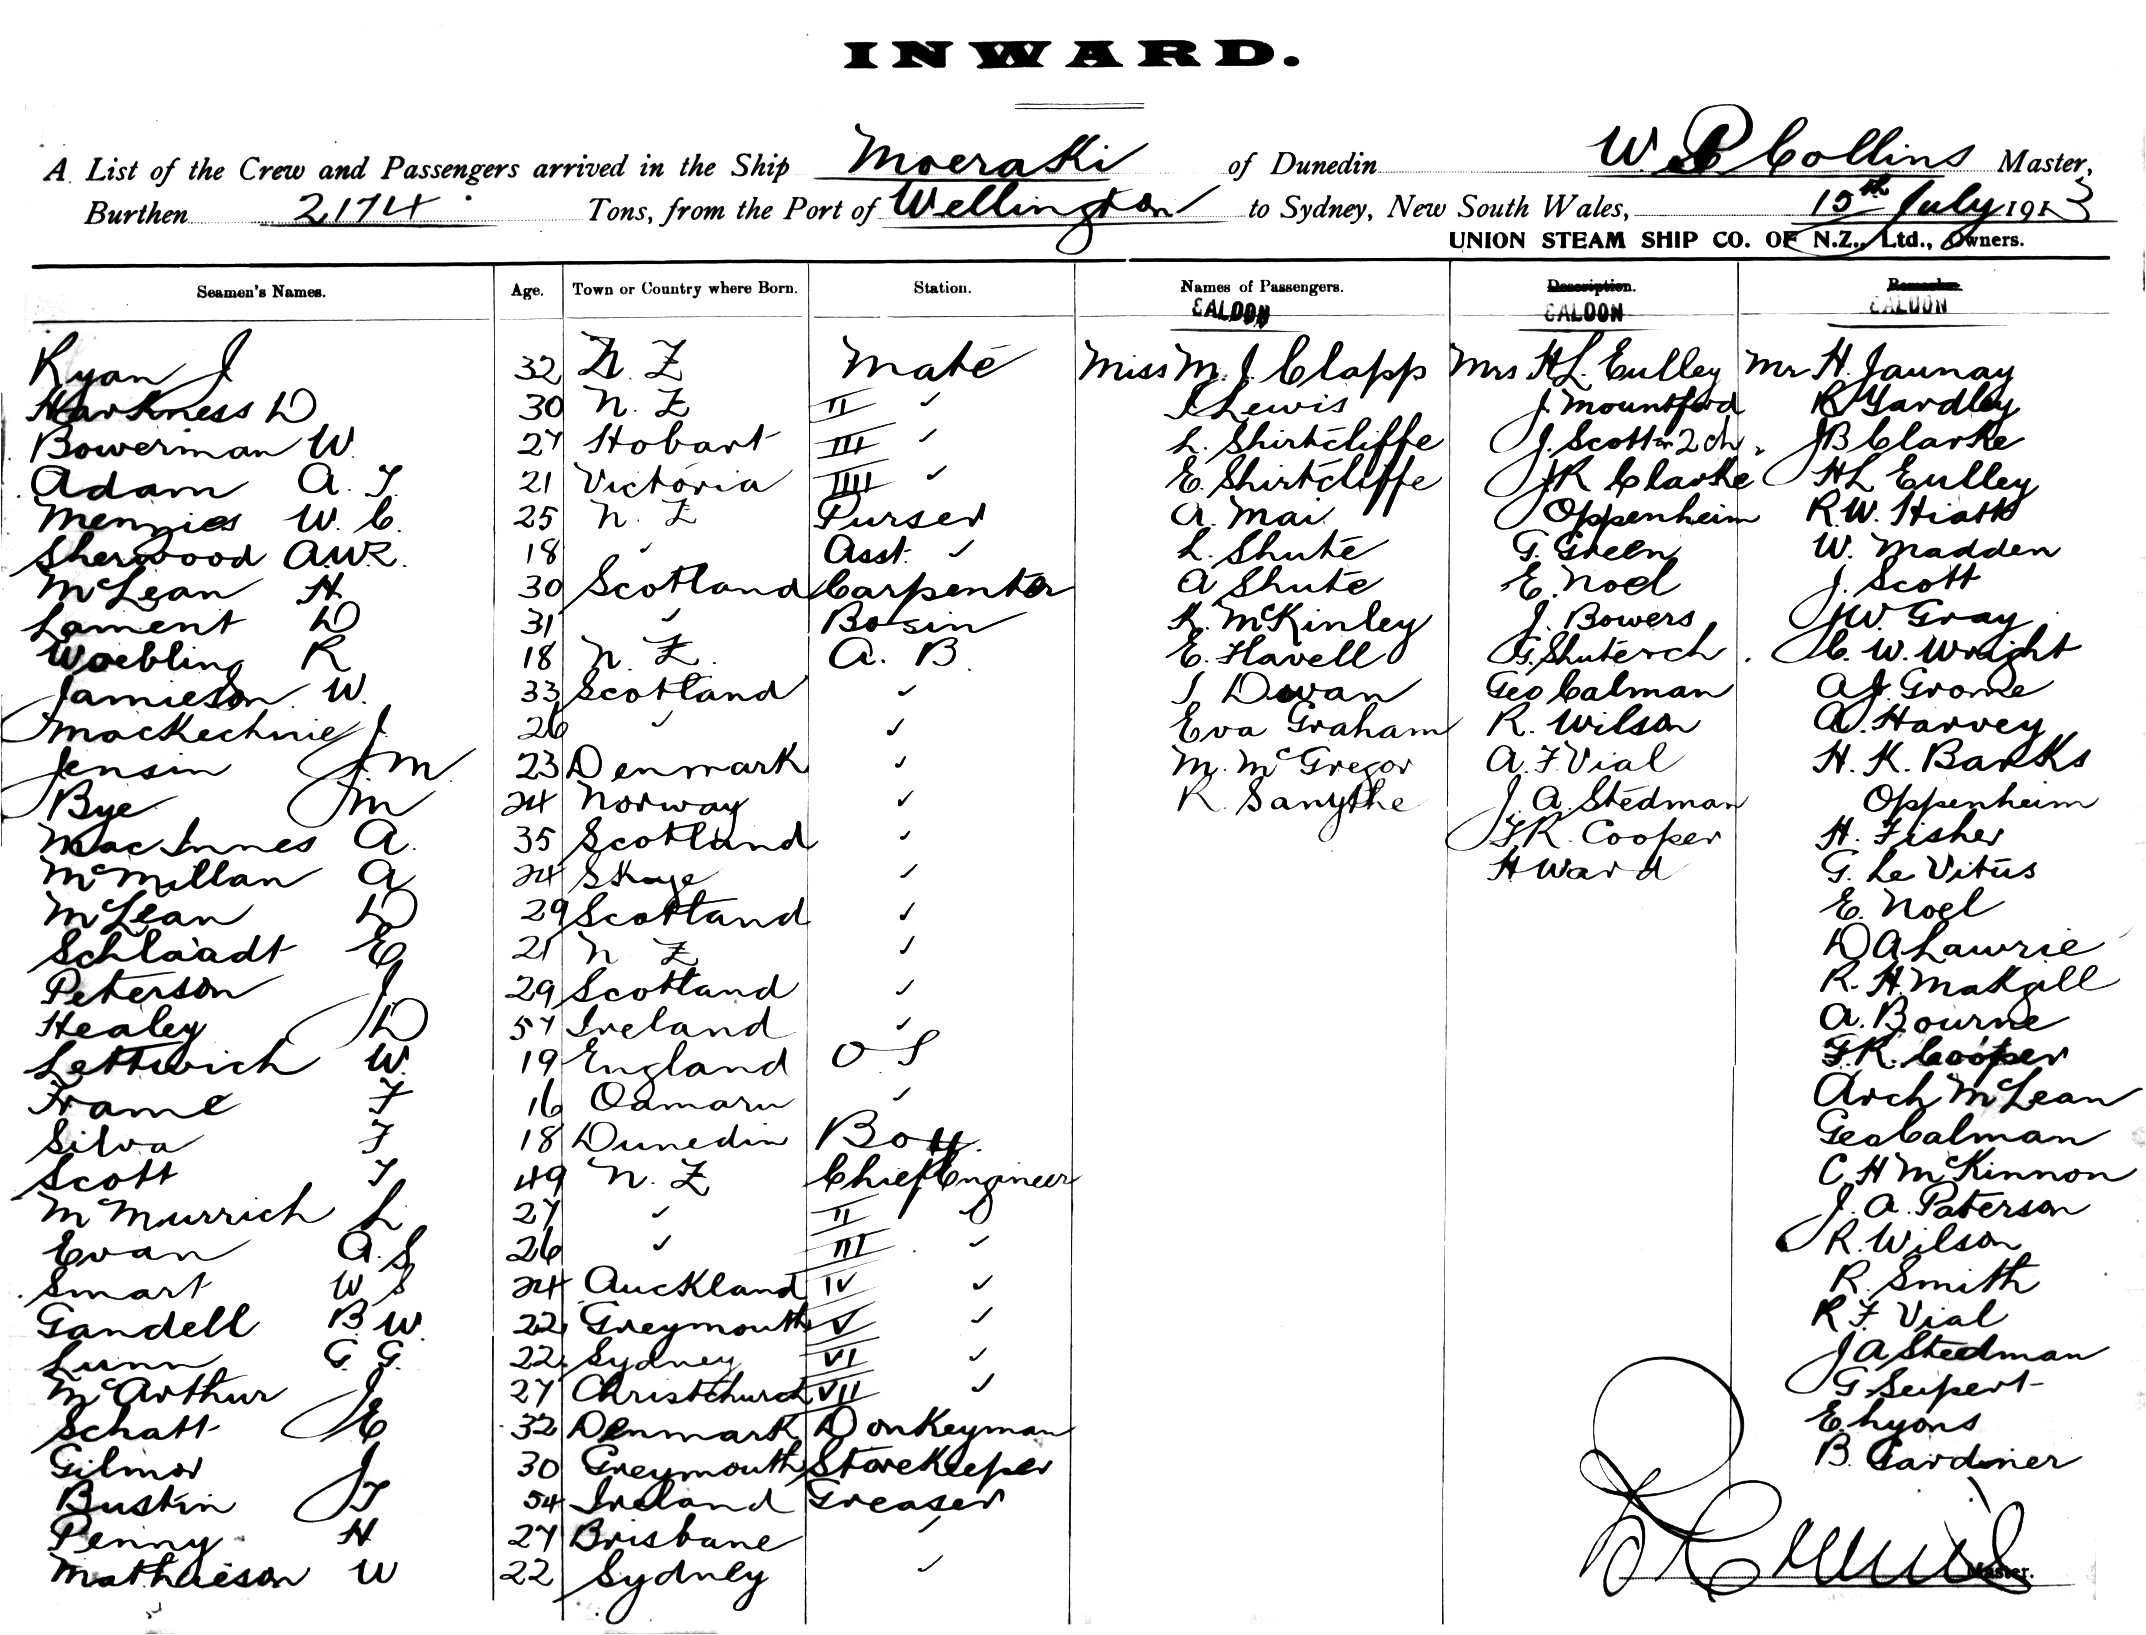 INWARD.
A List of the Crew and Passengers arrived in the Ship Moeraki of Dunedin W. P Collins Master,
Burthen 2174 Tons, from the Port of Wellington to Sydney, New South Wales, 15th July 1913
UNION STEAM SHIP CO. OF N.Z., Ltd., Owners.
Seamen's Names. Age. Town or Country where Born. Station. Names of Passengers. Description. Remarks.
SALOON SALOON SALOON
Ryan J 32 N. Z Mate Miss M. J. Clapp Mrs H L. Culley Mr H. Jaunay
Harkness D 30 N. Z II ✓ I Lewis J. Mountford R Yardley
Bowerman W. 27 Hobart III ✓ L. Shirtcliffe J. Scott & 2 ch. J B Clarke
Adam A. T. 21 Victoria IIII ✓ E. Shirtcliffe J R Clarke H L Culley
Menzies W. C. 25 N. Z Purser A. Mai Oppenheim R. W. Hiatt
Sherwood A.W.R. 18 ✓ Asst. ✓ L. Shute G. Green W. Madden
McLean H. 30 Scotland Carpenter A Shute E. Noel J. Scott
Lament D 31 ✓ Bosin K. McKinley J. Bowers J W. Gray
Woebling R 18 N. Z. A. B. E. Havell G. Shuterch. C. W. Wright
Jamieson W. 33 Scotland ✓ I Dwan Geo Calman A J. Grome
MacKechnie J. 26 ✓ ✓ Eva Graham R. Wilson A. Harvey
Jensin J. M 23 Denmark ✓ M. McGregor A. F. Vial H. K. Banks
Bye J M 24 Norway ✓ R. Sanythe J. A. Stedman Oppenheim
MacInnes A. 35 Scotland ✓ F R. Cooper H. Fisher
McMillan A 24 Skye ✓ H Ward G. Le Vitus
McLean D 29 Scotland ✓ E. Noel
Schlaadt E 21 N Z ✓ D A Lawrie
Peterson J 29 Scotland ✓ R. H. Makgill
Healey J D 57 Ireland ✓ A. Bourne
Lettwich W. 19 England O S F. R. Cooper
Frame F 16 Oamaru ✓ Arch McLean
Silva F 18 Dunedin Boy. Geo Calman
Scott T 49 N. Z Chief Engineer C H McKinnon
McMurrich L 27 ✓ II ✓ J. A. Paterson
Evan A. S 26 ✓ III ✓ R. Wilson
Smart W S 24 Auckland IV ✓ R. Smith
Gandell B. W. 22 Greymouth V ✓ R F. Vial
Lunn G. G. 22 Sydney VI ✓ J A Stedman
McArthur J 27 Christchurch VII ✓ G Seipert
Schatt J E 32 Denmark Donkeyman E Lyons
Gilmor J 30 Greymouth Storekeeper B. Gardiner
Bustin J T 54 Ireland Greaser
Penny H 27 Brisbane ✓
Mathieson W 22 Sydney ✓
Master.